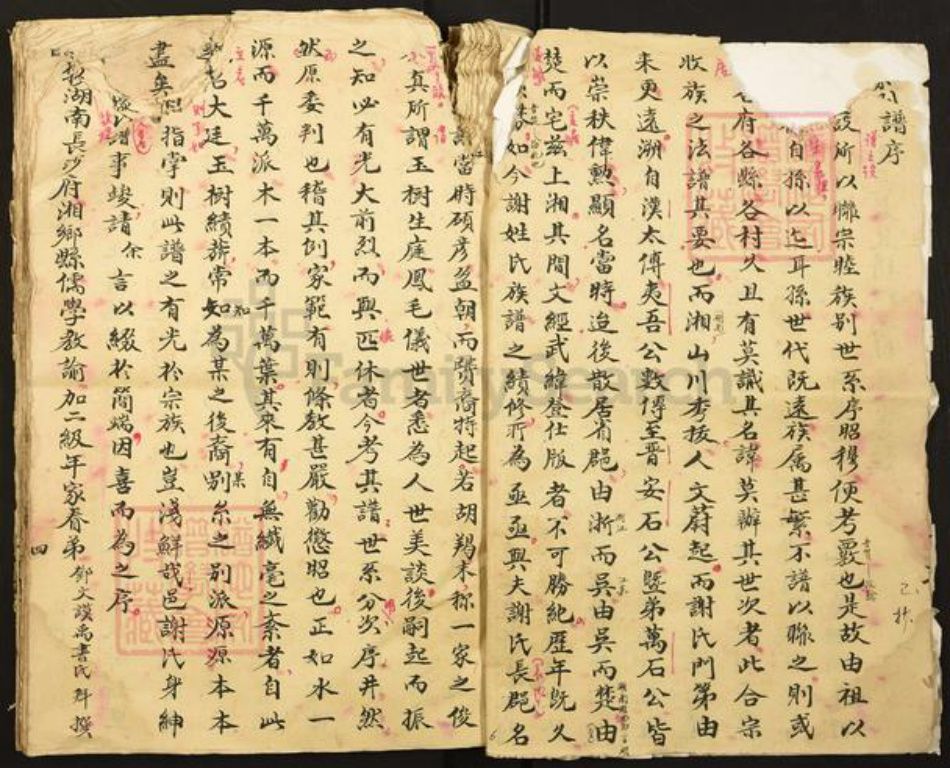 譜序
設所以聯宗睦族别世系序昭穆便考覈也是故由祖以
自孫以迄耳孫世代既遠族属甚繁不譜以聯之則或
府各縣各村久且有莫識其名諱莫辦其世次者此合宗
收族之法譜其要也而湘山川秀拔人文蔚起而謝氏門第由
来更遠溯自漢太傅夷吾公數傳至晋安石公暨弟萬石公皆
以崇秩偉勲顯名當時迨後散居省郡由浙而吳由吳而楚由
楚而宅兹上湘其間文經武緯登仕版者不可勝紀歴年既久
如今謝姓氏族譜之績修所為亟亟興夫謝氏長郡名
當時碩彦盈朝而賢裔特起若胡羯末称一家之俊
真所謂玉樹生庭鳳毛儀世者悉為人世美談後嗣起而振
之知必有光大前烈而興匹休者今考其譜世系分次序井然
然原委判也稽其例家範有則條教甚嚴勸懲昭也正如水一
源而千萬派木一本而千萬葉其来有自無纖毫之紊者自此
大廷玉樹績旂常知為某之後裔别糸之别派源源本本
盡矣熙指掌則此譜之有光於宗族也豈淺鮮哉邑謝氏身紳
家譜事竣請余言以綴於简端因喜而為之序
湖南長沙府湘鄉縣儒學教諭加二級年家眷弟鄧文謨禹書氏拜撰
四
FamilySearch